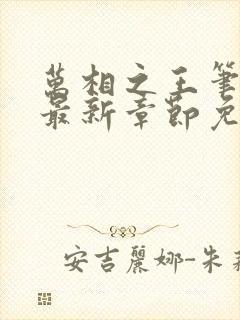 萬相之王筆
最新章節免
安吉麗娜-朱